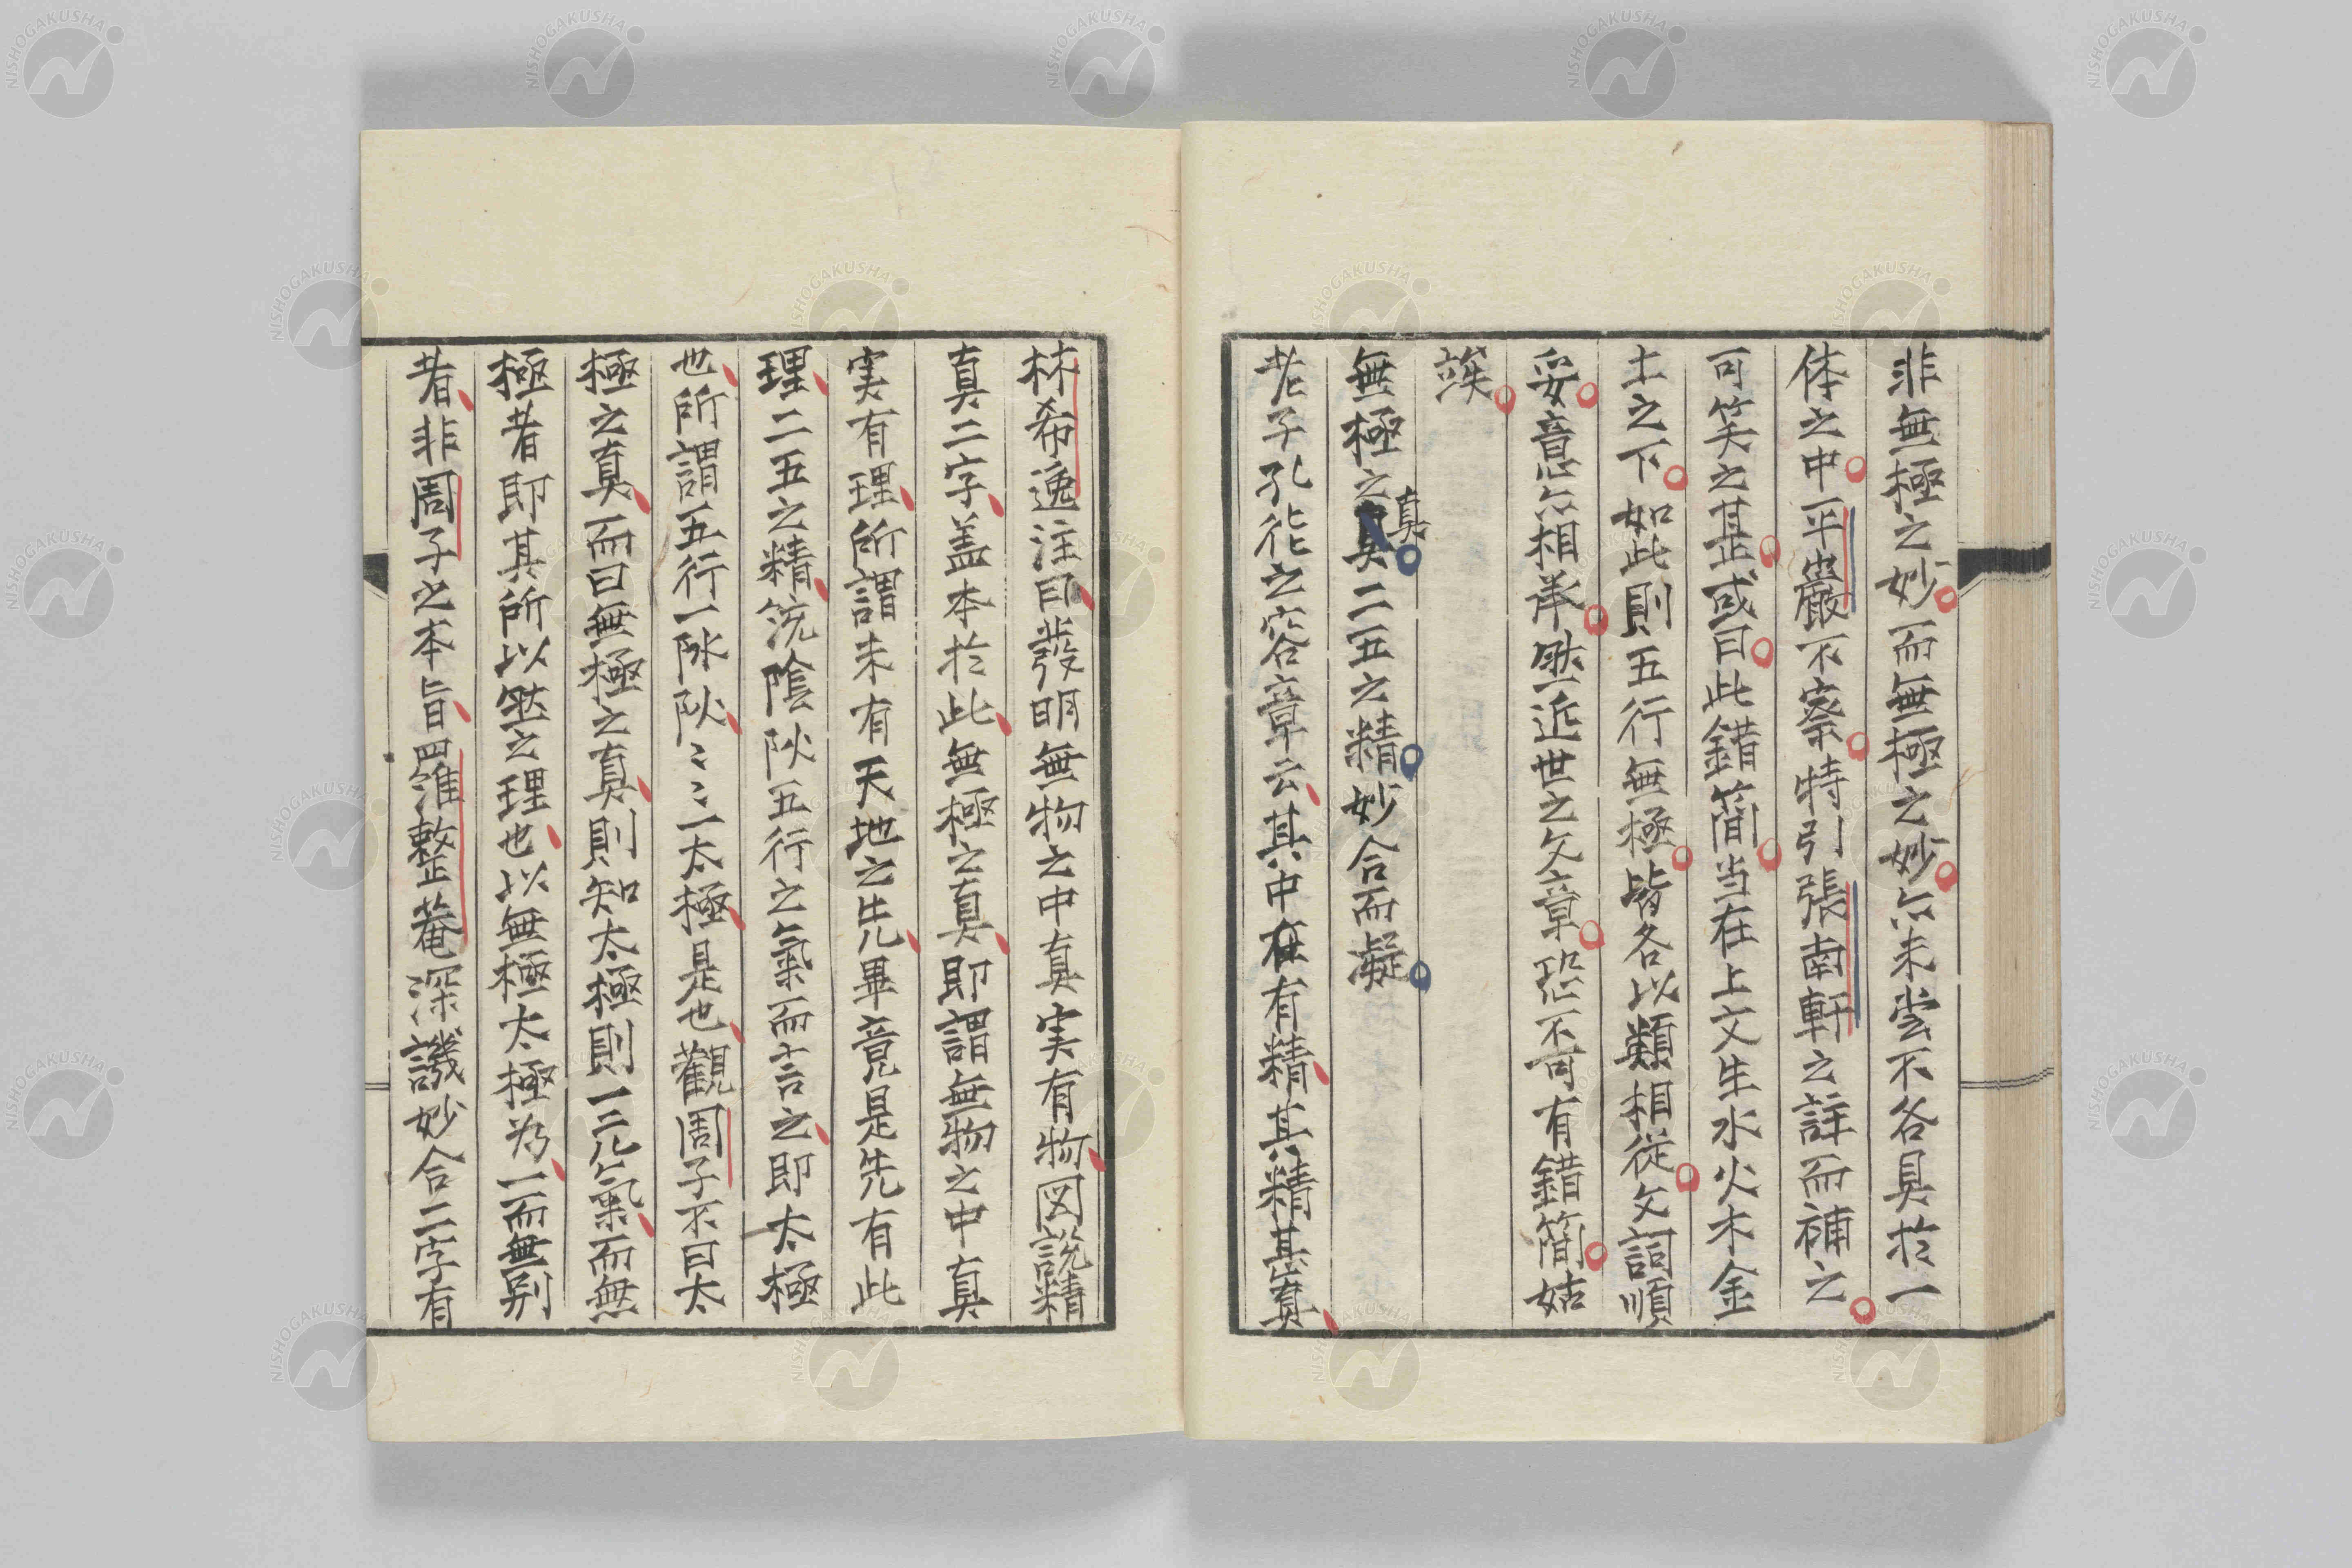 非無極之妙而無極之妙亦未甞不各具於一
体之中平巖不察特引張南軒之註而補之
可笑之甚或曰此錯簡当在上文生水火木金
土之下如此則五行無極皆各以類相從文詞順
妥意亦相承然近世之文章恐不可有錯簡姑
竢
無極之真二五之精妙合而凝
真
老子孔徳之容章云其中在有精其精甚真
林希逸注曰發明無物之中真実有物図説精
真二字盖本於此無極之真即謂無物之中真
実有理所謂未有天地之先畢竟是先有此
理二五之精統陰阦五行之氣而言之即太極
也所謂五行一陰阦〻〻一太極是也觀周子不曰太
極之真而曰無極之真則知太極則一元氣而無
極者即其所以然之理也以無極太極為一而無別
者非周子之本旨羅整菴深譏妙合二字有
NISHOGAKUSHA